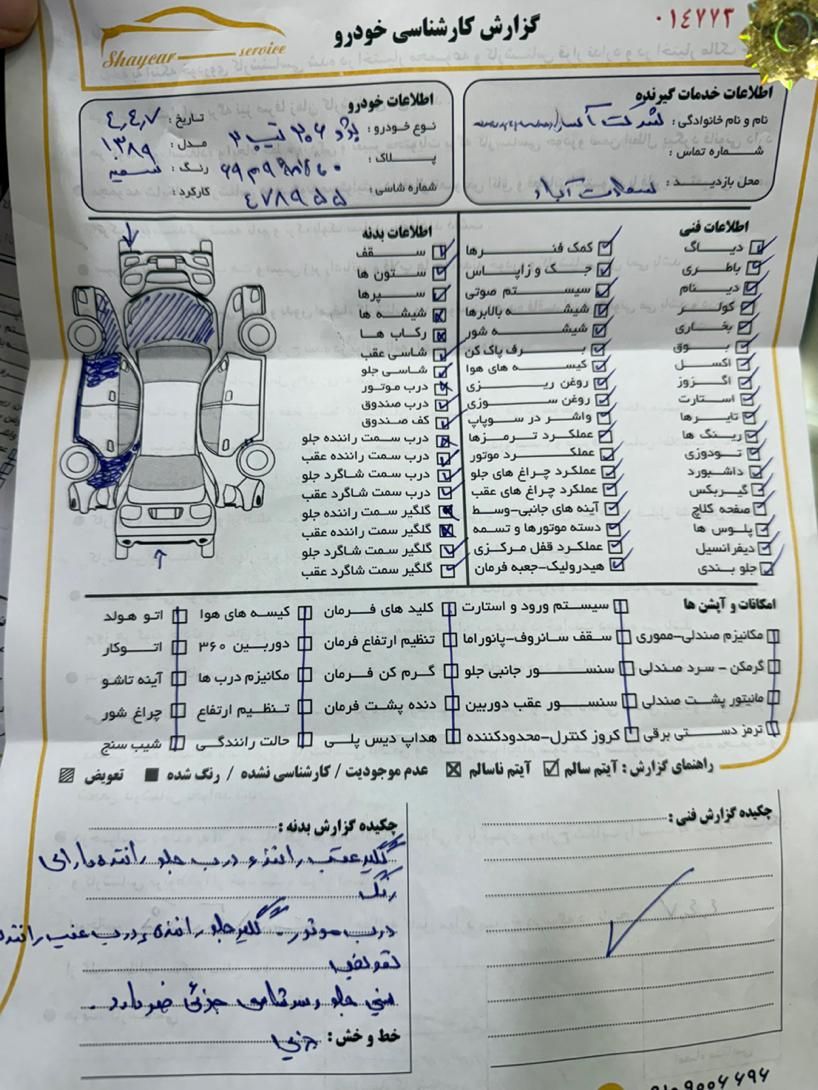 گزارش کارشناسی خودرو
۰۱۴۷۷۳
Shaycar service
اطلاعات خدمات گیرنده
نام و نام خانوادگی: شرکت
شماره تماس:
محل بازدید: سعادت آباد
اطلاعات خودرو
نوع خودرو: پژو ۲۰۶ تیپ ۲
تاریخ: ۴,۴,۷
مدل: ۱۳۸۹
پلاک:
رنگ: سفید
شماره شاسی: ۴۷۸۹۵۵
کارکرد:
اطلاعات فنی
دیاگ
باطری
دینام
کولر
بخاری
بوق
اکسل
اگزوز
استارت
تایرها
رینگ ها
تودوزی
داشبورد
گیربکس
صفحه کلاچ
پلوس ها
دیفرانسیل
جلو بندی
کمک فنرها
جک و زاپاس
سیستم صوتی
شیشه بالابرها
شیشه شور
برف پاک کن
کیسه های هوا
روغن ریزی
روغن سوزی
واشر در سوپاپ
عملکرد ترمزها
عملکرد موتور
عملکرد چراغ های جلو
عملکرد چراغ های عقب
آینه های جانبی-وسط
دسته موتورها و تسمه
عملکرد قفل مرکزی
هیدرولیک-جعبه فرمان
اطلاعات بدنه
سقف
ستون ها
سپرها
شیشه ها
رکاب ها
شاسی عقب
شاسی جلو
درب موتور
درب صندوق
کف صندوق
درب سمت راننده جلو
درب سمت راننده عقب
درب سمت شاگرد جلو
درب سمت شاگرد عقب
گلگیر سمت راننده جلو
گلگیر سمت راننده عقب
گلگیر سمت شاگرد جلو
گلگیر سمت شاگرد عقب
امکانات و آپشن ها
مکانیزم صندلی-مموری
گرمکن - سرد صندلی
مانیتور پشت صندلی
ترمز دستی برقی
سیستم ورود و استارت
سقف سانروف-پانوراما
سنسور جانبی جلو
سنسور عقب دوربین
کروز کنترل-محدودکننده
کلید های فرمان
تنظیم ارتفاع فرمان
گرم کن فرمان
دنده پشت فرمان
هداپ دیس پلی
کیسه های هوا
دوربین ۳۶۰
مکانیزم درب ها
تنظیم ارتفاع
حالت رانندگی
اتو هولد
اتوکار
آینه تاشو
چراغ شور
شیب سنج
راهنمای گزارش: آیتم سالم آیتم ناسالم عدم موجودیت / کارشناسی نشده / رنگ شده تعویض
چکیده گزارش فنی:
چکیده گزارش بدنه:
گلگیر عقب راننده و درب جلو راننده دارای
رنگ
درب موتور - گلگیر جلو راننده و درب عقب راننده
تعویض
سینی جلو رستاق جزئی ضربه دارد.
خط و خش: جزئی